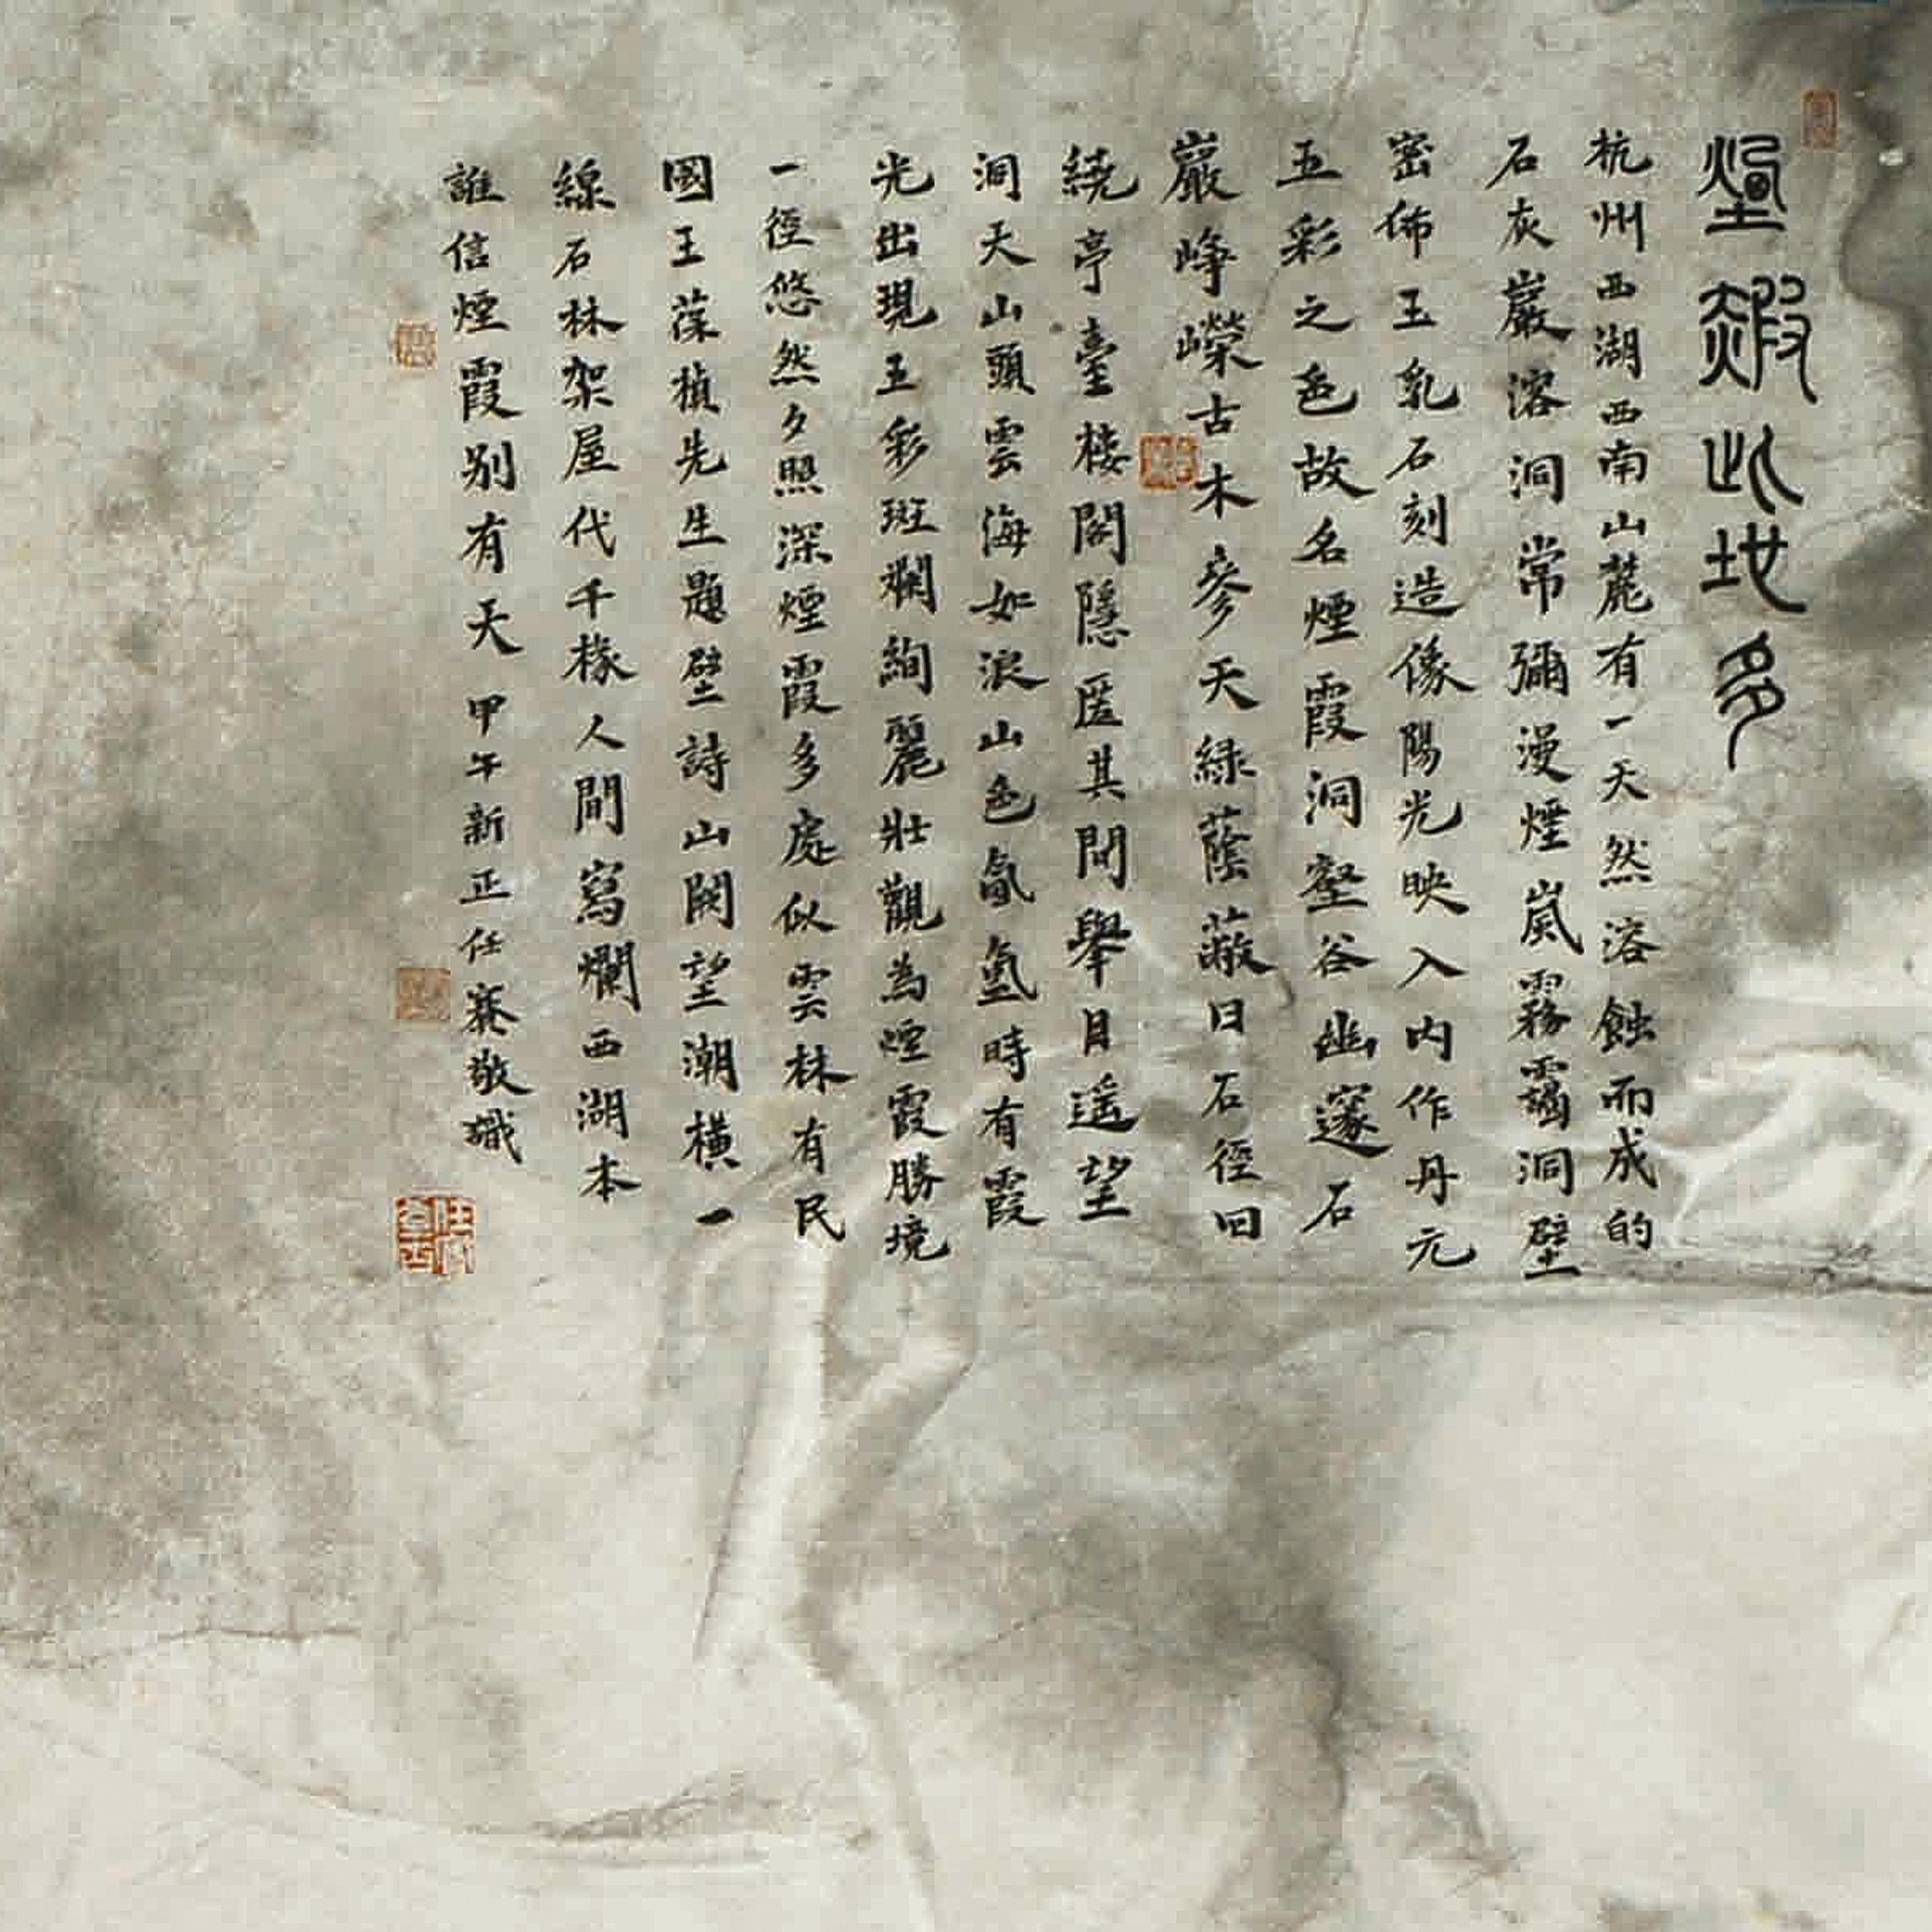 煙霞此地多
杭州西湖西南山麓有一天然溶蝕而成的
石灰巖溶洞常彌漫煙嵐霧靄洞壁
密佈玉乳石刻造像陽光映入内作丹元
五彩之色故名煙霞洞壑谷幽邃石
巖崢嶸古木參天綠蔭蔽日石徑回
繞亭臺樓閣隱匿其間舉目遥望
洞天山頭雲海如浪山色氤氳時有霞
光出現五彩斑斕絢麗壯觀為煙霞勝境
一徑悠然夕照深煙霞多處似雲林有民
國王葆楨先生題壁詩山閣望潮橫一
線石林架屋代千椽人間寫爛西湖本
誰信煙霞别有天甲午新正任賽敬識